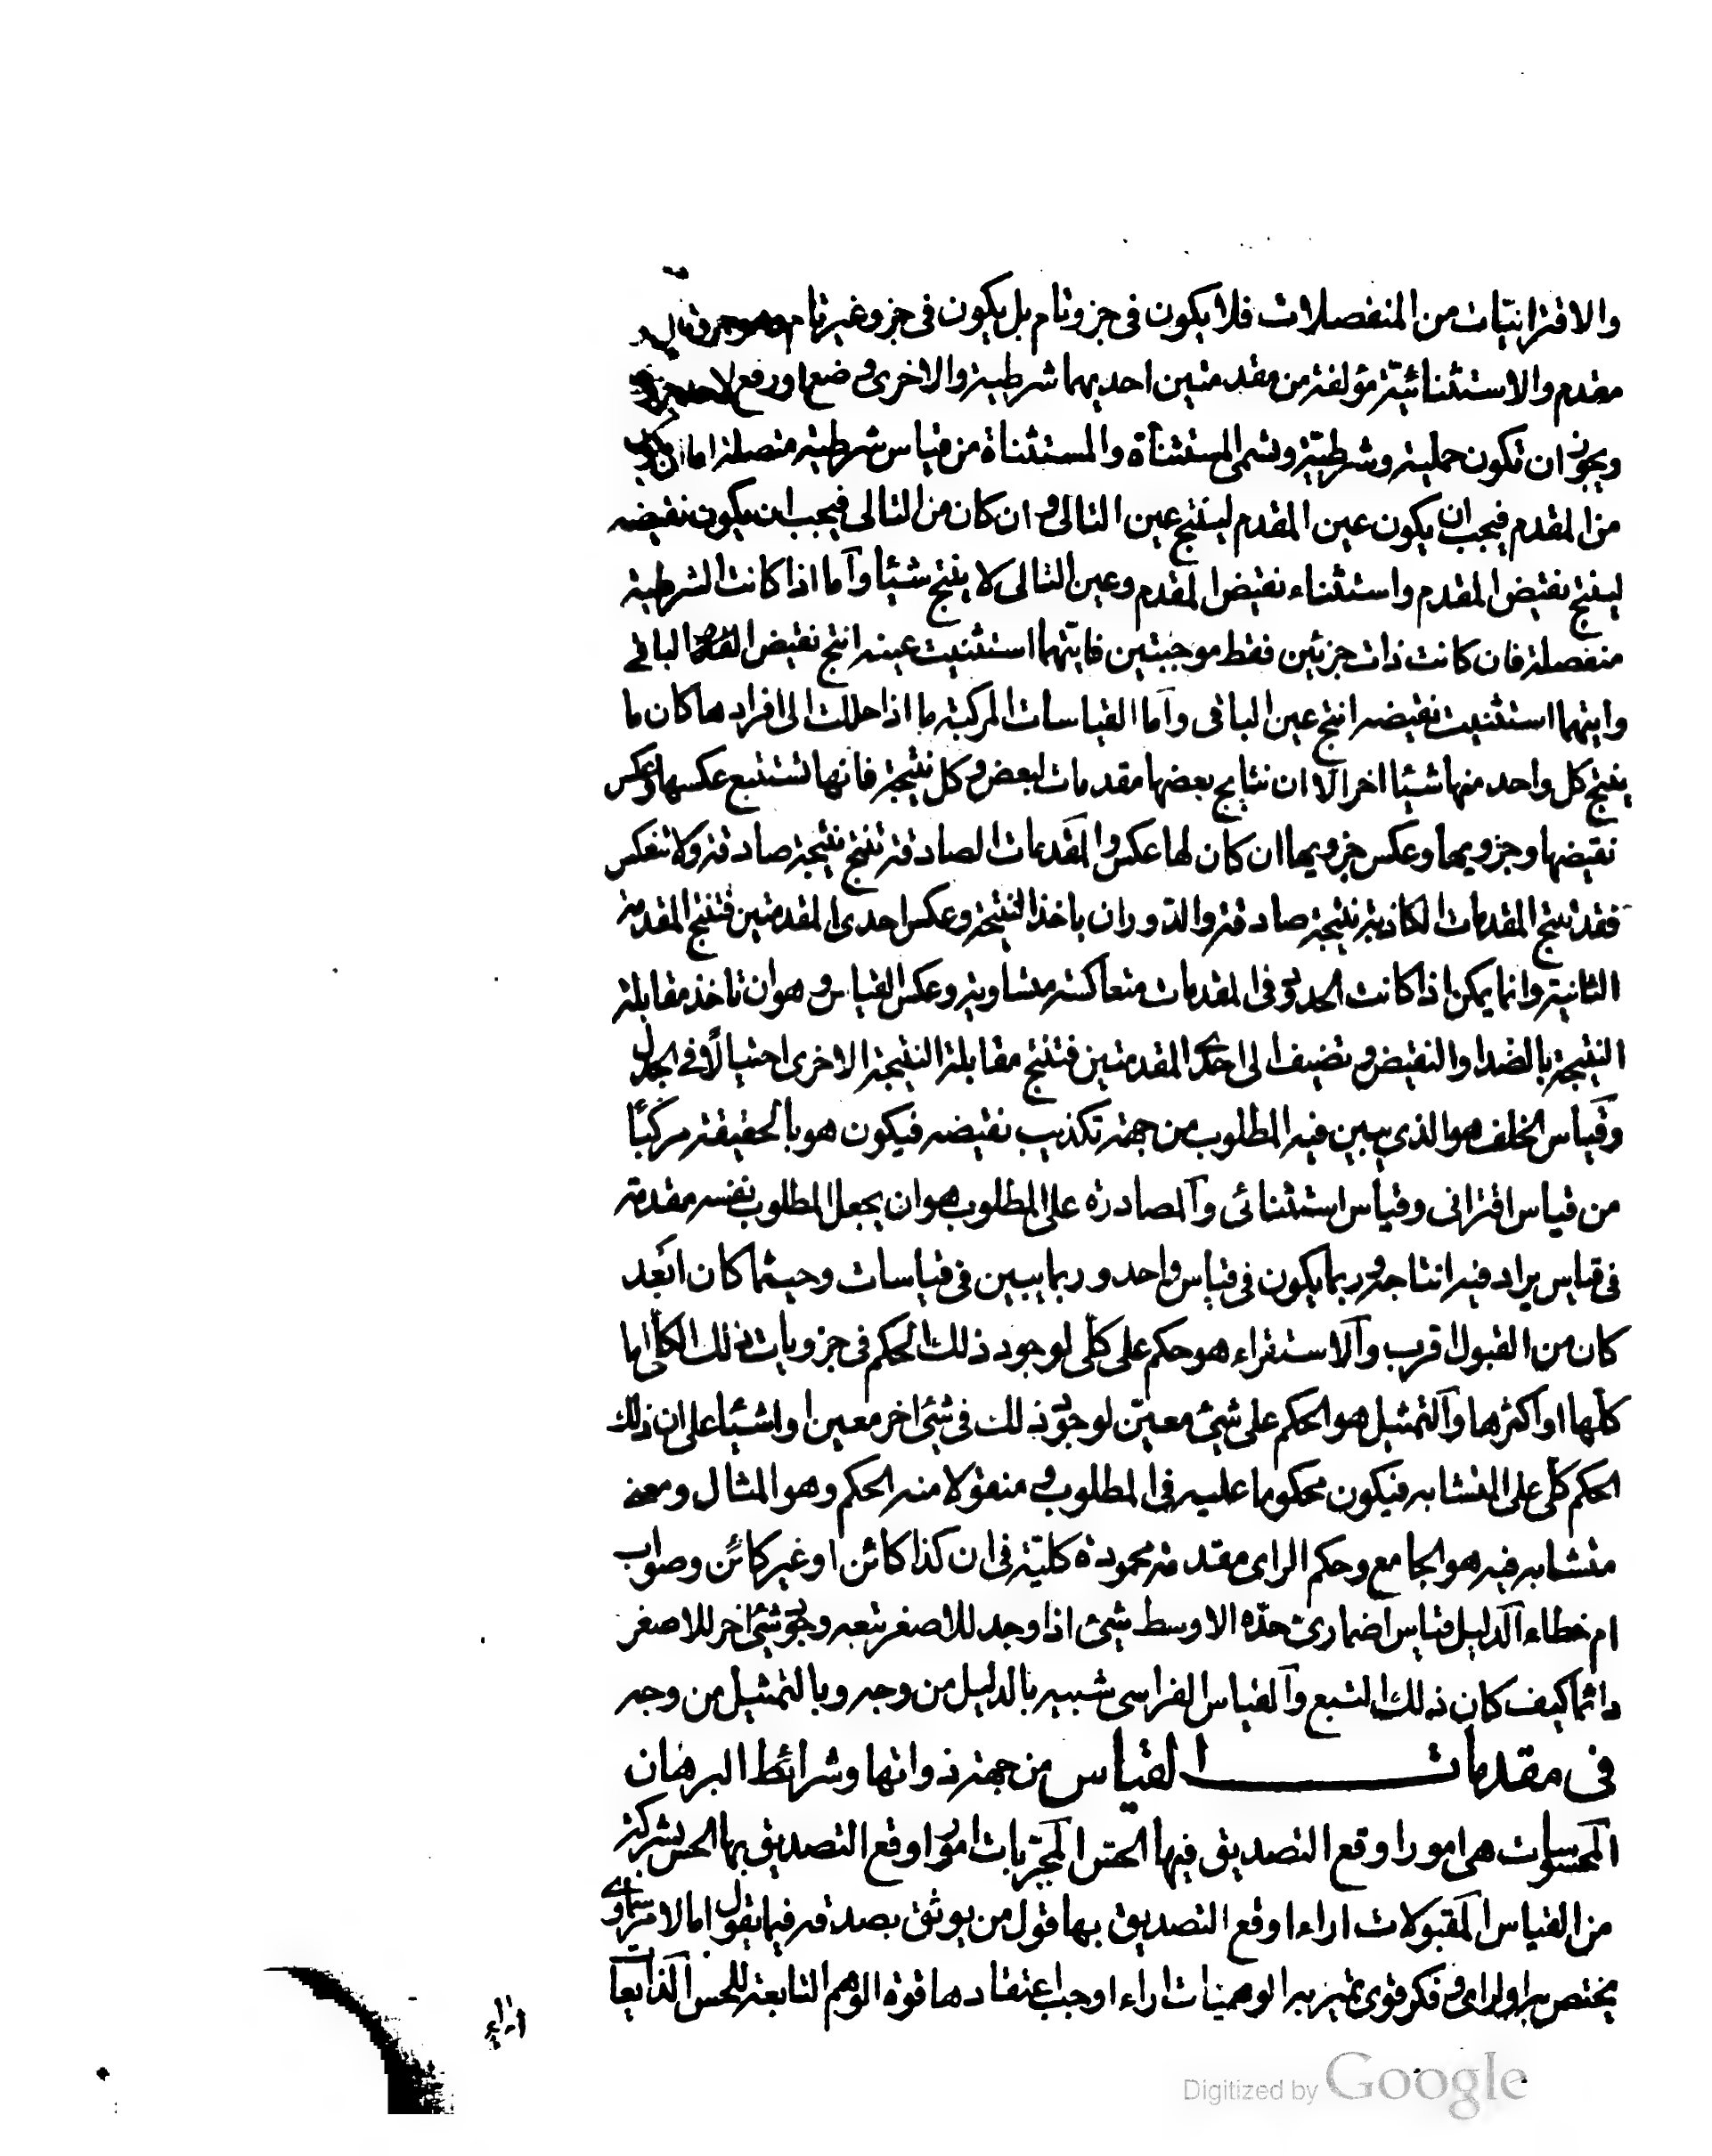 والاقترانيات من المنفصلات فلا يكون فى جزو تام بل يكون فى جزو غير تام
مقدم والاستثنائية مؤلفة من مقدمتين احديهما شرطية والاخرى وضع اورفع لاحد
ويجوز ان تكون حملية وشرطية وتسمى المستثناة والمستثناة من قياس شرطية متصلة اما ان
من المقدم فيجب ان يكون عين المقدم لينتج عين التالى وان كان من التالى فيجب ان يكون نقيضه
لينتج نقيض المقدم واستثناء نقيض المقدم وعين التالى لا ينتج شيئا وأما اذا كانت الشرطية
منفصلة فان كانت ذات جزئين فقط موجبتين فايتهما استثنيت عينه انتج نقيض الباقى
وايتهما استثنيت نقيضه انتج عين الباقى وأما القياسات المركبة ما اذا حللت الى افرادها كان ما
ينتج كل واحد منها شيئا اخر الا ان نتايج بعضها مقدمات لبعض وكل نتيجة فانها تستتبع عكسها وعكس
نقيضها وجزويها وعكس جزويها ان كان لها عكس والمقدمات الصادقة تنتج نتيجة صادقة ولا تنعكس
فقد تنتج المقدمات الكاذبة نتيجة صادقة والدوران ياخذ النتيجة وعكس احدى المقدمتين فتنتج المقدمة
الثانية وانما يمكن اذا كانت الحدود فى المقدمات متعاكسة متساوية وعكس القياس وهو ان تاخذ مقابلة
النتيجة بالضد او النقيض وتضيف الى احدى المقدمتين فتنتج مقابلة النتيجة الاخرى احتيالا فى الجدل
وقياس الخلف هو الذى يبين فيه المطلوب من جهة تكذيب نقيضه فيكون هو بالحقيقة مركبا
من قياس اقترانى وقياس استثنائى والمصادرة على المطلوب هو ان يجعل المطلوب نفسه مقدمة
فى قياس يراد فيه انتاجه وربما يكون فى قياس واحد وربما يبين فى قياسات وحيثما كان ابعد
كان من القبول اقرب والاستقراء هو حكم على كلى لوجود ذلك الحكم فى جزويات ذلك الكلى اما
كلها او اكثرها والتمثيل هو الحكم على شئ معين لوجود ذلك فى شئ اخر معين او اشيا على ان ذلك
الحكم كلى على المتشابه فيكون محكوما عليه فى المطلوب ومنقولا منه الحكم وهو المثال ومعنى
متشابه فيه هو الجامع وحكم الراى مقدمة محمودة كلية فى ان كذا كائن او غير كائن وصواب
ام خطاء الدليل قياس اضمارى حده الاوسط شئ اذا وجد للاصغر تبعه وجود شئ اخر للاصغر
دائما كيف كان ذلك التبع والقياس الفراسى شبيه بالدليل من وجه وبالتمثيل من وجه
فى مقدمات القياس من جهة ذواتها وشرائط البرهان
المحسوسات هى امور اوقع التصديق فيها الحس المجربات امور اوقع التصديق بها الحس بشركة
من القياس المقبولات اراء اوقع التصديق بها قول من يوثق بصدقه فيما يقول اما لامر سماوى
يختص به او لراى وفكر قوى تميز به الوهميات اراء اوجب اعتقادها قوة الوهم التابعة للحس الذايعات